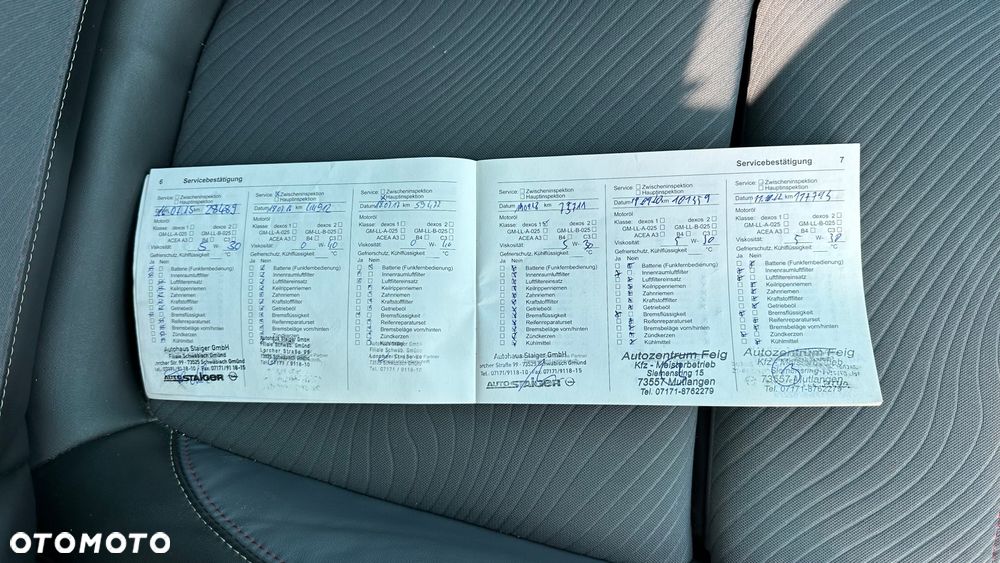 6 Servicebestätigung
Service: Zwischeninspektion
Hauptinspektion
28489
Motoröl
dexos 1 dexos 2
GM-LL-A-025 GM-LL-B-025
ACEA A3 B4 C3
Viskosität: 5 W- 30
Gefrierschutz, Kühlflüssigkeit: °C
Ja Nein
Batterie (Funkfernbedienung)
Innenraumluftfilter
Luftfiltereinsatz
Keilrippenriemen
Zahnriemen
Kraftstofffilter
Getriebeöl
Bremsflüssigkeit
Reifenreparaturset
Bremsbeläge vorn/hinten
Zündkerzen
Kühlmittel
Autohaus Staiger GmbH
Filiale Schwäbisch Gmünd
Lorcher Str. 99 · 73525 Schwäbisch Gmünd
Tel. 07171/9118-10 · Fax 07171/9118-15
AUTO STAIGER
Service: Zwischeninspektion
Hauptinspektion
Datum km
Motoröl
dexos 1 dexos 2
GM-LL-A-025 GM-LL-B-025
ACEA A3 B4 C3
Viskosität: 0 W- 40
Gefrierschutz, Kühlflüssigkeit: °C
Ja Nein
Batterie (Funkfernbedienung)
Innenraumluftfilter
Luftfiltereinsatz
Keilrippenriemen
Zahnriemen
Kraftstofffilter
Getriebeöl
Bremsflüssigkeit
Reifenreparaturset
Bremsbeläge vorn/hinten
Zündkerzen
Kühlmittel
Autohaus Staiger GmbH
Service: Zwischeninspektion
Hauptinspektion
Datum km
Motoröl
dexos 1 dexos 2
GM-LL-A-025 GM-LL-B-025
ACEA A3 B4 C3
Viskosität: 0 W- 40
Gefrierschutz, Kühlflüssigkeit: °C
Ja Nein
Batterie (Funkfernbedienung)
Innenraumluftfilter
Luftfiltereinsatz
Keilrippenriemen
Zahnriemen
Kraftstofffilter
Getriebeöl
Bremsflüssigkeit
Reifenreparaturset
Bremsbeläge vorn/hinten
Zündkerzen
Autohaus Staiger GmbH
Servicebestätigung 7
Service: Zwischeninspektion
Hauptinspektion
Datum km
Motoröl
dexos 1 dexos 2
GM-LL-A-025 GM-LL-B-025
ACEA A3 B4 C3
Viskosität: 5 W- 30
Gefrierschutz, Kühlflüssigkeit: °C
Ja Nein
Batterie (Funkfernbedienung)
Innenraumluftfilter
Luftfiltereinsatz
Keilrippenriemen
Zahnriemen
Kraftstofffilter
Getriebeöl
Bremsflüssigkeit
Reifenreparaturset
Bremsbeläge vorn/hinten
Zündkerzen
Kühlmittel
Autohaus Staiger GmbH
Filiale Schwäbisch Gmünd
Lorcher Str. 99 · 73525 Schwäbisch Gmünd
Tel. 07171/9118-10 · Fax 07171/9118-15
AUTO STAIGER
Service: Zwischeninspektion
Hauptinspektion
Datum km 101359
Motoröl
dexos 1 dexos 2
GM-LL-A-025 GM-LL-B-025
ACEA A3 B4 C3
Viskosität: 5 W- 30
Gefrierschutz, Kühlflüssigkeit: °C
Ja Nein
Batterie (Funkfernbedienung)
Innenraumluftfilter
Luftfiltereinsatz
Keilrippenriemen
Zahnriemen
Kraftstofffilter
Getriebeöl
Bremsflüssigkeit
Reifenreparaturset
Bremsbeläge vorn/hinten
Zündkerzen
Kühlmittel
Autozentrum Feig
Kfz - Meisterbetrieb
Siemensring 15
73557 Mutlangen
Tel. 07171-8762279
Service: Zwischeninspektion
Hauptinspektion
Datum km
Motoröl
dexos 1 dexos 2
GM-LL-A-025 GM-LL-B-025
ACEA A3 B4 C3
Viskosität: 5 W- 30
Gefrierschutz, Kühlflüssigkeit: °C
Ja Nein
Batterie (Funkfernbedienung)
Innenraumluftfilter
Luftfiltereinsatz
Keilrippenriemen
Zahnriemen
Kraftstofffilter
Getriebeöl
Bremsflüssigkeit
Reifenreparaturset
Bremsbeläge vorn/hinten
Zündkerzen
Kühlmittel
Autozentrum Feig
Kfz - Meisterbetrieb
73557 Mutlangen
Tel. 07171-8762279
OTOMOTO